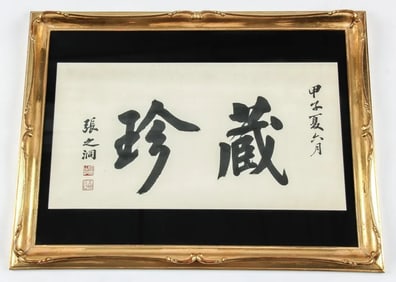 甲子夏六月
蔵珍
張之洞